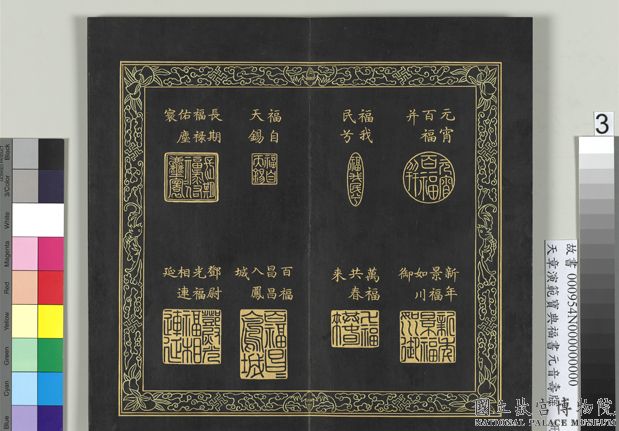 元宵
百福
并
福我
民兮
福自
天錫
長期
福祿
佑塵
寰
新年
景福
如川
御
萬福
共春
來
百福
昌昌
八鳳
城
鄧尉
光福
相連
延
3
故書 000954N000000000
天章演範寶典福書元音壽牒
Black
3/Color
White
Magenta
Red
Yellow
Green
Cyan
Blue
國立故宮博物院
NATIONAL PALACE MUSEUM